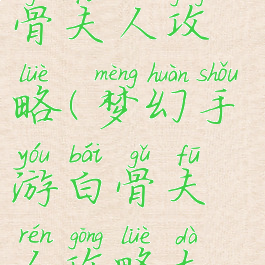 骨夫人攻
lüè mèng huàn shǒu
略(梦幻手
yóu bái gǔ fū
游白骨夫
rén gōng lüè dà
人攻略大